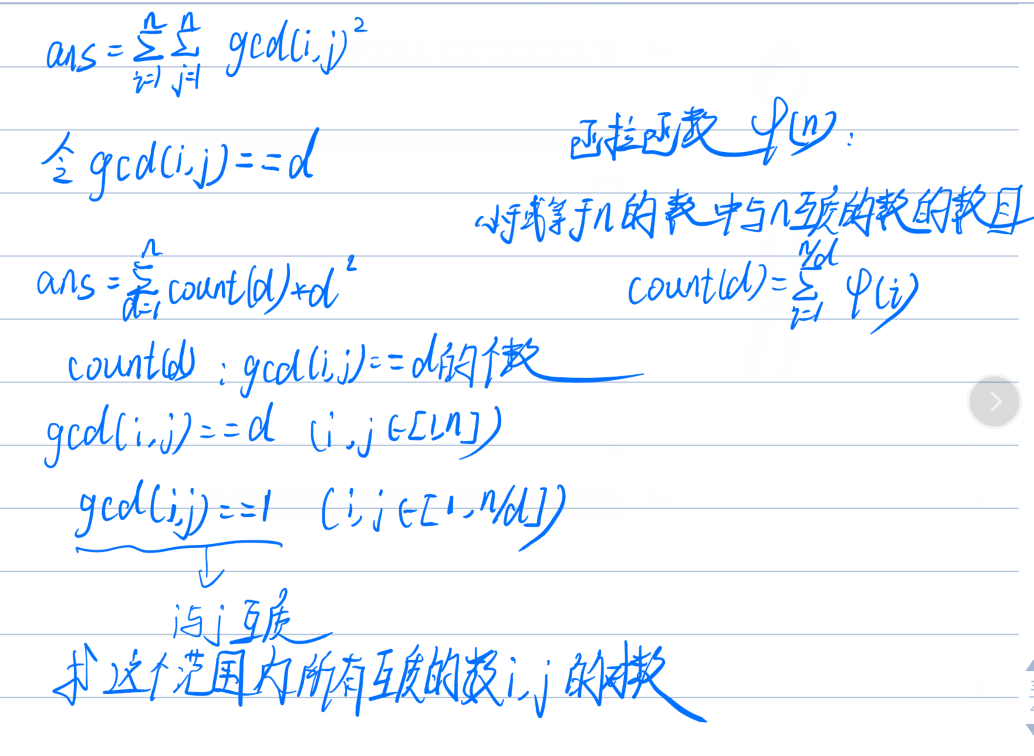 ans = \sum_{i=1}^{n} \sum_{j=1}^{n} gcd(i,j)^2
令 gcd(i,j)==d
ans = \sum_{d=1}^{n} count(d)*d^2
count(d) : gcd(i,j)==d的个数
gcd(i,j)==d (i,j∈[1,n])
gcd(i,j)==1 (i,j∈[1,n/d])
i与j互质
求这个范围内所有互质的数i,j的对数
函拉函数 φ(n):
小于或等于n的数中与n互质的数的数目
count(d)=\sum_{i=1}^{n/d} φ(i)